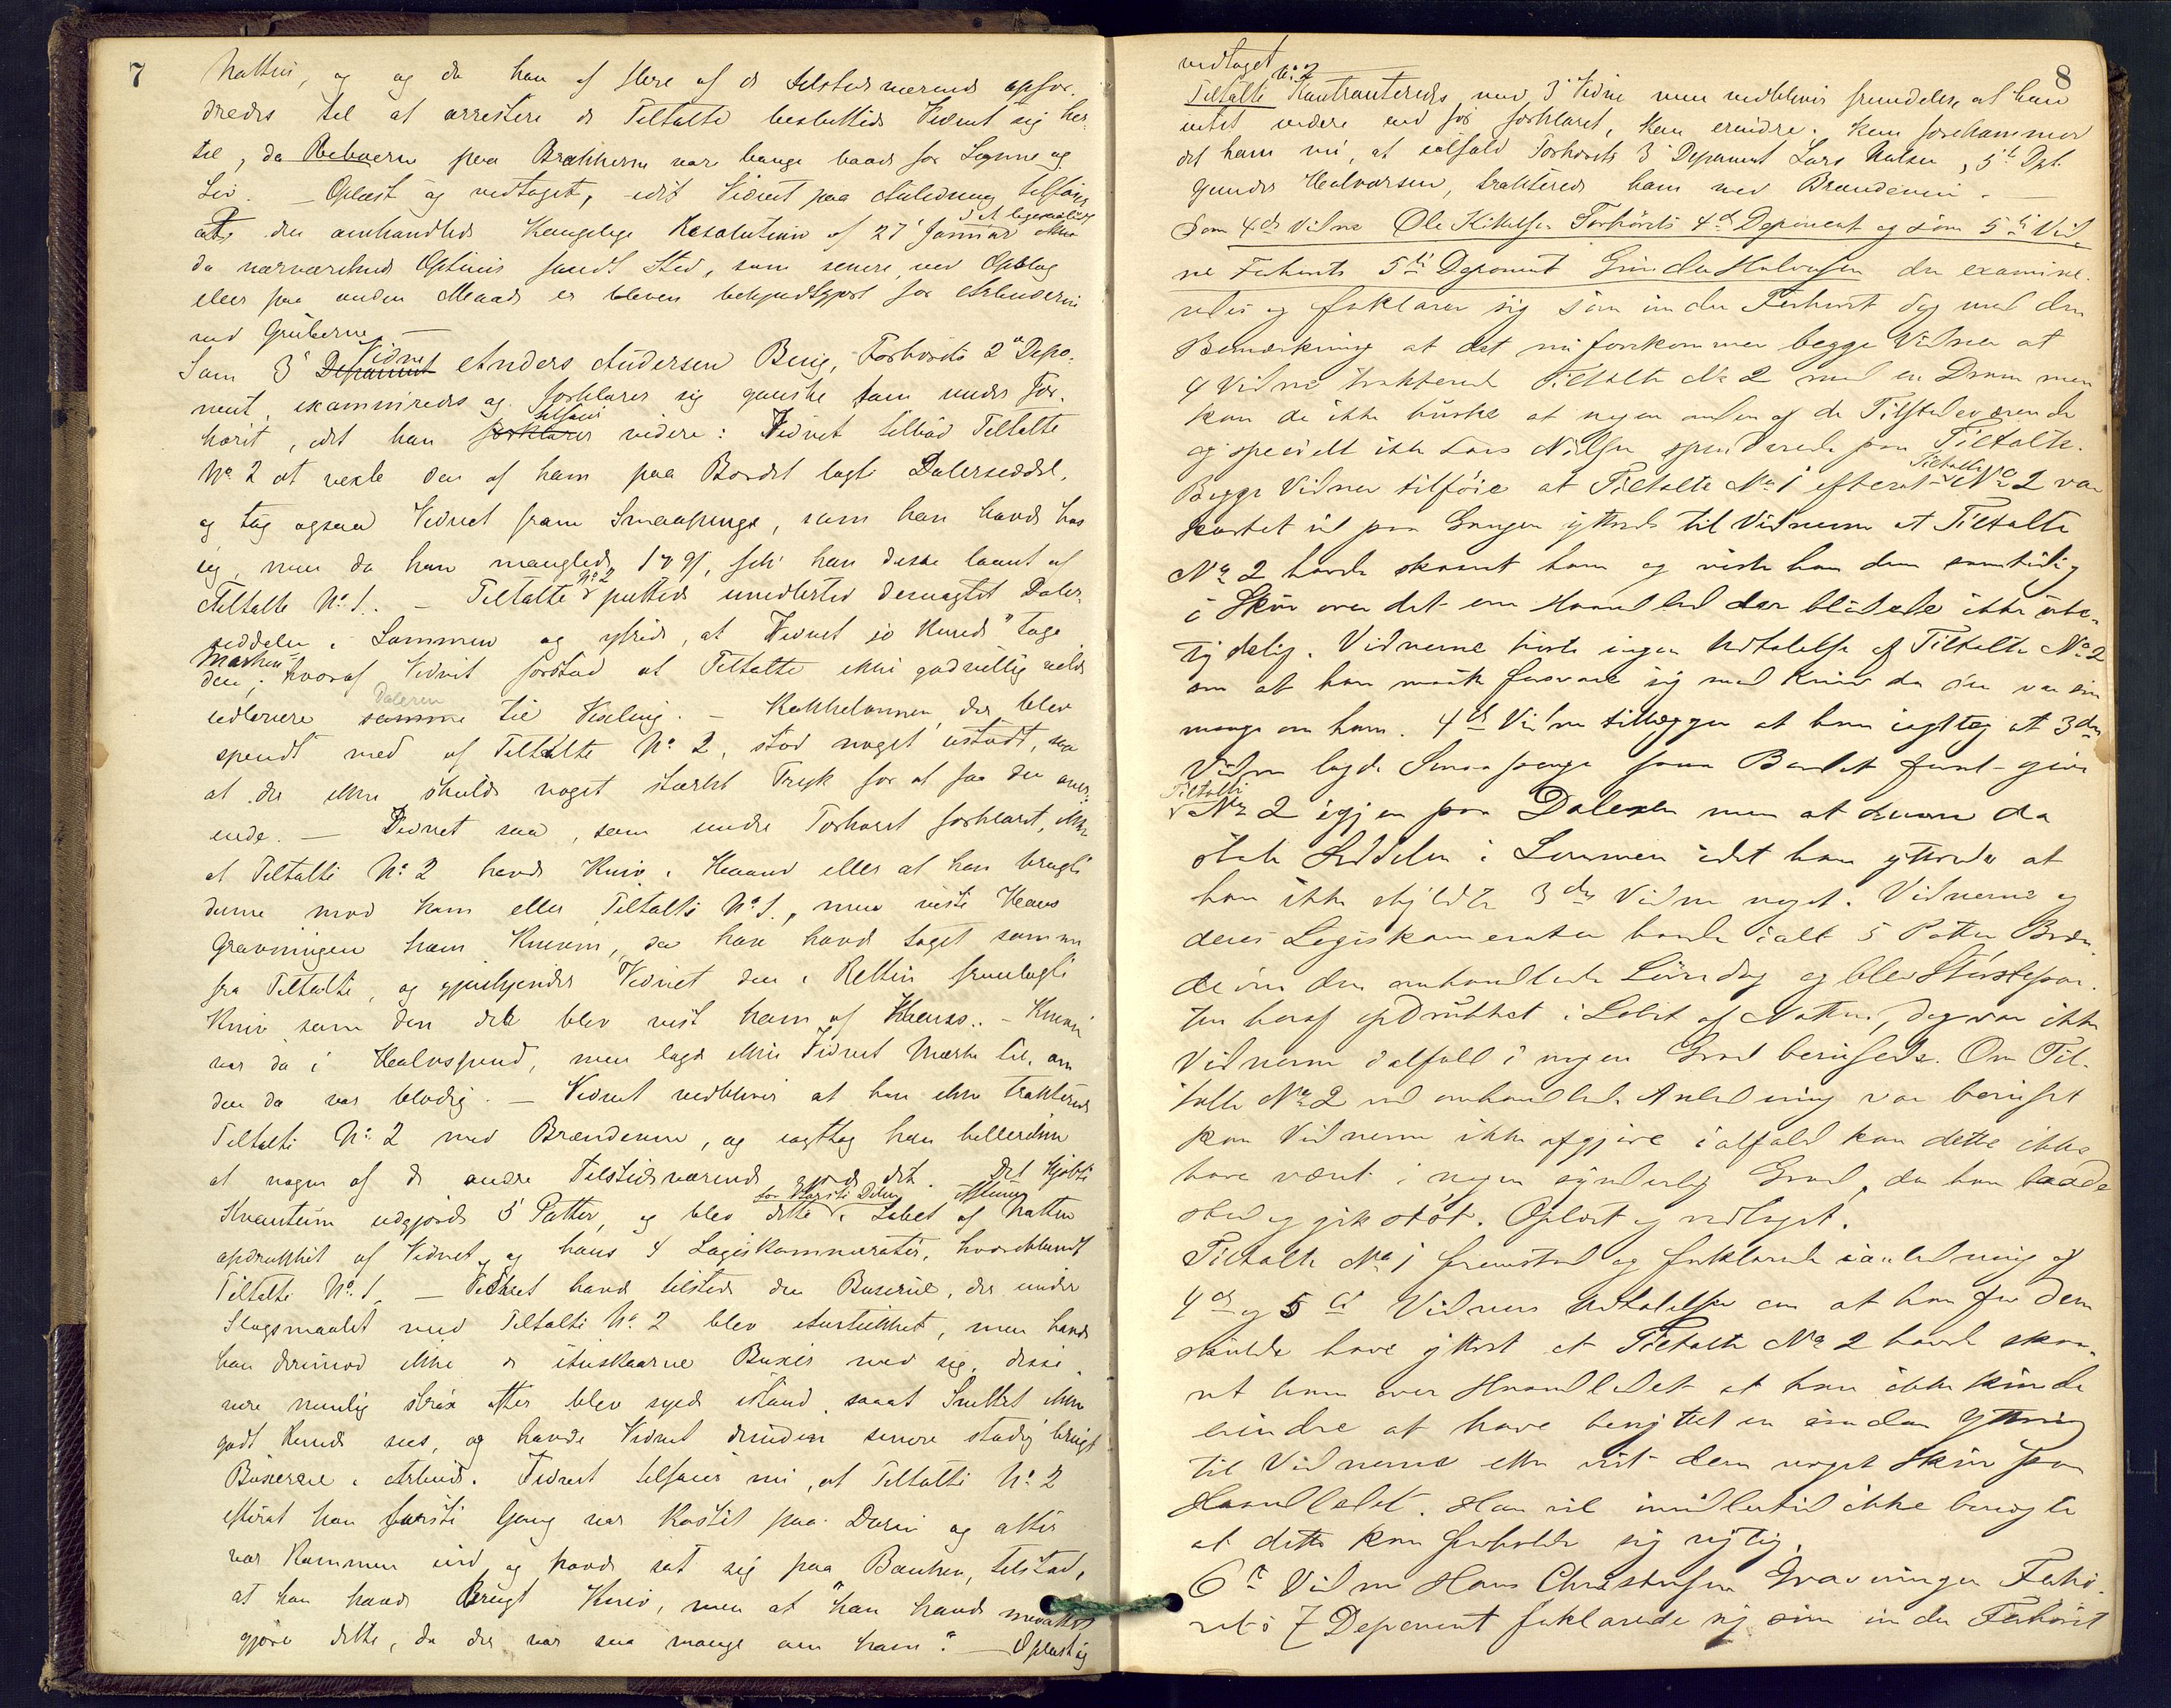 7
Natten, og og da han af flere af de tilstedeværende opfor-
dredes til at arrestere de Tiltalte besluttede Vidnet sig her-
til, da Beboerne paa Brakkerne vare bange baade for Lemme og
Liv. — Oplæst og vedtaget, idet Vidnet paa Anledning tilføier
at den omhandlede Kongelige Resolution af 27 Januar d. A. ligesaalidt
da nærværende Optøier fandt Sted, som senere ved Opslag
eller paa anden Maade er bleven bekjendtgjort for Arbeiderne
ved Gruberne. —
Som 3' Deponent Vidnet Anders Andersen Berg, Forhørets 2' Depo-
nent, examineredes og forklarer sig ganske som under For-
høret, idet han forklarer tilføier videre: Vidnet tilbød Tiltalte
No 2 at vexle den af ham paa Bordet lagte Dalerseddel,
og tog ogsaa Vidnet frem Smaapenge, som han havde hos
sig, men da han manglede 17 sk, fik han disse laant af
Tiltalte No 1. — Tiltalte No 2 puttede imidlertid desuagtet Daler-
seddelen i Lommen og ytrede, at Vidnet jo kunde "tage
Marken den", hvoraf Vidnet forstod at Tiltalte ikke godvillig vilde
udlevere samme Daleren til Vexling. — Kakkelovnen, der blev
spendt med af Tiltalte No 2, stod noget ustødt, saa
at der ikke skulde noget stærkt Tryk for at faa den over-
ende. — Vidnet saa, som under Forhøret forklaret, ikke
at Tiltalte No 2 havde Kniv i Haand eller at han brugte
denne mod ham eller Tiltalte No 1., men viste Hans
Gravningen ham Kniven, da han havde taget samme
fra Tiltalte, og gjenkjender Vidnet den i Retten fremlagte
Kniv som den der blev vist ham af Hans. — Kniven
var da i Halvspend, men lagde ikke Vidnet Mærke til, om
den da var blodig. — Vidnet vedbliver at han ikke trakterede
Tiltalte No 2 med Brændeviin, og iagttog han hellerikke
at nogen af de andre Tilstedeværende gjorde det. Det kjøbte
Kvantum udgjorde 5 Potter, og blev dette for største Delen i Løbet af Natten
opdrukket af Vidnet og hans 4 Logiskammerater, hvoriblandt
Tiltalte No 1. — Vidnet havde tilstede den Buserul, der under
Slagsmaalet med Tiltalte No 2 blev istustukket, men havde
han derimod ikke de ituskaarne Buxer med sig, disse
vare nemlig strax efter blev syede istand, saaat Snittet ikke
godt kunde sees, og havde Vidnet desuden senere stadig brugt
Buxerne i Arbeide. Vidnet tilføier nu, at Tiltalte No 2
efterat han første Gang var kastet paa Døren og atter
var kommen ind og havde sat sig paa Bænken, tilstod,
at han havde brugt Kniv, men at "han havde maattet
gjøre dette, da der var saa mange om ham". — Oplæst og
8
vedtaget
Tiltalte No 2 Konfronteredes med 3' Vidne men vedbliver fremdeles, at han
intet videre end før forklaret, kan erindre. Kun forekommer
det ham nu, at ialfald Forhørets 3' Deponent Lars Nielsen, 5te Dpt.
Gunder Halvorsen, trakterede ham med Brændeviin. —
Som 4de Vidne Ole Kittelsen Forhørets 4de Deponent og som 5te Vid-
ne Forhørets 5te Deponent Gunder Halvorsen der examine-
redes og forklarer sig som under Forhøret dog med den
Bemærkning at det nu forekommer begge Vidner at
4 Vidne trakterede Tiltalte No 2 med en Dram men
kan de ikke huske at nogen anden af de Tilstedeværende
og specielt ikke Lars Nielsen spenderede paa Tiltalte.
Begge Vidner tilføie at Tiltalte No 1 efterat Tiltalte No 2 var
kastet ud paa Gangen yttrede til Vidnerne at Tiltalte
No 2 havde skaaret ham og viste han dem samtidig
i Skin over det ene Haandled der blødede ikke ube-
tydelig. Vidnerne hørte ingen Udtalelse af Tiltalte No 2
om at han maatte forsvare sig med Kniv da der var saa
mange om ham. 4de Vidne tillægger at han iagttog at 3die
Vidne lagde Smaapenge frem Bordet for at give
Tiltalte No 2 igjen paa Daleren men at denne da
stak Seddelen i Lommen idet han yttrede at
han ikke skyldte 3die Vidne noget. Vidnerne og
deres Logiskamerater havde ialt 5 Potter Bræn-
deviin den omhandlede Løverdag og blev Størstepar-
ten heraf opdrukket i Løbet af Natten, dog var ikke
Vidnerne ialfald i nogen Grad berusede. Om Til-
talte No 2 ved omhandlede Anledning var beruset
kan Vidnerne ikke afgjøre ialfald kan dette ikke
have været i nogen synderlig Grad, da han baade
stod og gik støt. Oplæst og vedtaget.
Tiltalte No 1 fremstod og forklarede i anledning af
4de og 5te Vidners Udtalelse om at han for dem
skulde have yttret at Tiltalte No 2 havde skaa-
ret ham over Haandledet at han ikke kunde
erindre at have benyttet en saadan Yttring
til Vidnerne eller vist dem noget Skin paa
Haandledet. Han vil imidlertid ikke benegte
at dette kan forholde sig rigtig.
6te Vidne Hans Christensen Gravningen Forhø-
rets 7 Deponent forklarede sig som under Forhøret